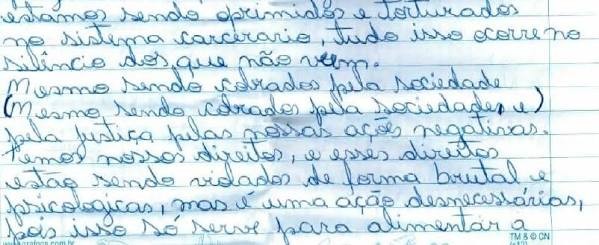 estamos sendo oprimidos e torturados
no sistema carcerario, tudo isso ocorre no
silêncio dos, que não veem.
Mesmo sendo cobrados pela sociedade
(Mesmo sendo cobrados pela sociedade, e)
pela justiça pelas nossas ações negativas.
temos nossos direitos, e esses direitos
estão sendo violados de forma brutal e
psicologicas, mas é uma ação desnecessárias,
pois isso só serve para alimentar o
TM & © CN